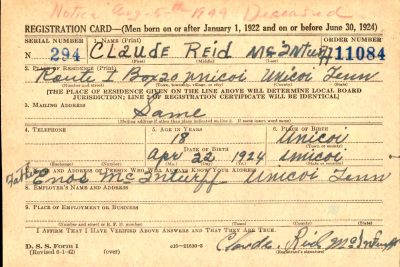 Notice Aug. 5th 1944 Deceased
REGISTRATION CARD—(Men born on or after January 1, 1922 and on or before June 30, 1924)
SERIAL NUMBER 1. NAME (Print) ORDER NUMBER
N 294 Claude Reid McInturff 11084
(First) (Middle) (Last)
2. PLACE OF RESIDENCE (Print)
Route 1 Box 20 Unicoi Unicoi Tenn
(Number and street) (Town, township, village, or city) (County) (State)
[THE PLACE OF RESIDENCE GIVEN ON THE LINE ABOVE WILL DETERMINE LOCAL BOARD
JURISDICTION; LINE 2 OF REGISTRATION CERTIFICATE WILL BE IDENTICAL]
3. MAILING ADDRESS
Same
[Mailing address if other than place indicated on line 2. If same insert word same]
4. TELEPHONE 5. AGE IN YEARS 6. PLACE OF BIRTH
18 Unicoi
DATE OF BIRTH (Town or county)
Apr 22 1924 Unicoi
(Exchange) (Number) (Mo.) (Day) (Yr.) (State or country)
7. NAME AND ADDRESS OF PERSON WHO WILL ALWAYS KNOW YOUR ADDRESS
Father Enos McInturff Unicoi Tenn
8. EMPLOYER'S NAME AND ADDRESS
9. PLACE OF EMPLOYMENT OR BUSINESS
(Number and street or R. F. D. number) (Town) (County) (State)
I AFFIRM THAT I HAVE VERIFIED ABOVE ANSWERS AND THAT THEY ARE TRUE.
D. S. S. Form 1
(Revised 6-1-42) (over) 16—21630-2 Claude Reid McInturff
(Registrant's signature)